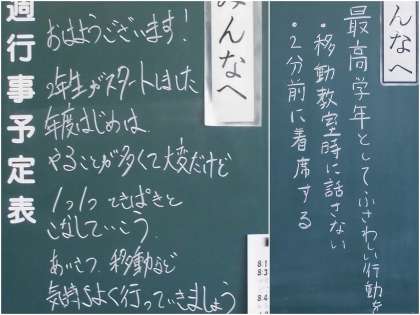 週行事予定表
みんなへ
おはようございます!
2年生がスタートしました
年度はじめは、
やることが多くて大変だけど
1つ1つ てきぱきと
こなしていこう。
あいさつ、移動など
気持ちよく行っていきましょう
8:1
8:3
8:4
んなへ
最高学年としてふさわしい行動を
・移動教室時に話さない
・2分前に着席する